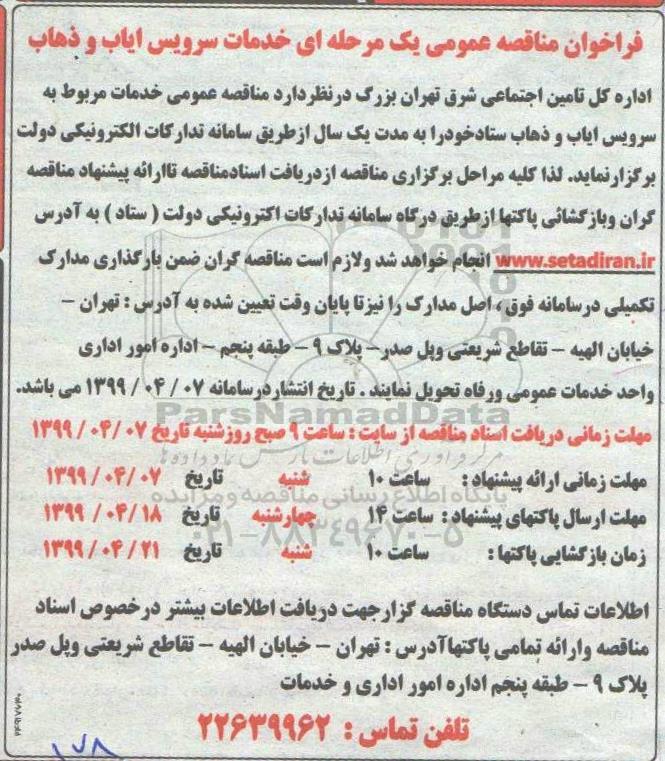 فراخوان مناقصه عمومی یک مرحله ای خدمات سرویس ایاب و ذهاب
اداره کل تامین اجتماعی شرق تهران بزرگ درنظردارد مناقصه عمومی خدمات مربوط به
سرویس ایاب و ذهاب ستادخودرا به مدت یک سال ازطریق سامانه تدارکات الکترونیکی دولت
برگزارنماید. لذا کلیه مراحل برگزاری مناقصه ازدریافت اسنادمناقصه تاارائه پیشنهاد مناقصه
گران وبازگشائی پاکتها ازطریق درگاه سامانه تدارکات اکترونیکی دولت ( ستاد ) به آدرس
www.setadiran.ir انجام خواهد شد ولازم است مناقصه گران ضمن بارگذاری مدارک
تکمیلی درسامانه فوق ، اصل مدارک را نیزتا پایان وقت تعیین شده به آدرس : تهران –
خیابان الهیه – تقاطع شریعتی وپل صدر– پلاک ۹ – طبقه پنجم – اداره امور اداری
واحد خدمات عمومی ورفاه تحویل نمایند . تاریخ انتشاردرسامانه ۰۷ / ۰۴ / ۱۳۹۹ می باشد.
ParsNamadData
مهلت زمانی دریافت اسناد مناقصه از سایت : ساعت ۹ صبح روزشنبه تاریخ ۰۷ / ۰۴ / ۱۳۹۹
مرکز فرآوری اطلاعات پارس نماد داده ها
مهلت زمانی ارائه پیشنهاد : ساعت ۱۰ شنبه تاریخ ۰۷ / ۰۴ / ۱۳۹۹
پایگاه اطلاع رسانی مناقصه و مزایده
مهلت ارسال پاکتهای پیشنهاد : ساعت ۱۴ چهارشنبه تاریخ ۱۸ / ۰۴ / ۱۳۹۹
۰۲۱-۸۸۳۴۹۶۷۰-۵
زمان بازگشایی پاکتها : ساعت ۱۰ شنبه تاریخ ۲۱ / ۰۴ / ۱۳۹۹
اطلاعات تماس دستگاه مناقصه گزارجهت دریافت اطلاعات بیشتر درخصوص اسناد
مناقصه وارائه تمامی پاکتهاآدرس : تهران – خیابان الهیه – تقاطع شریعتی وپل صدر
پلاک ۹ – طبقه پنجم اداره امور اداری و خدمات
تلفن تماس : ۲۲۶۳۹۹۶۲
۱۷۸